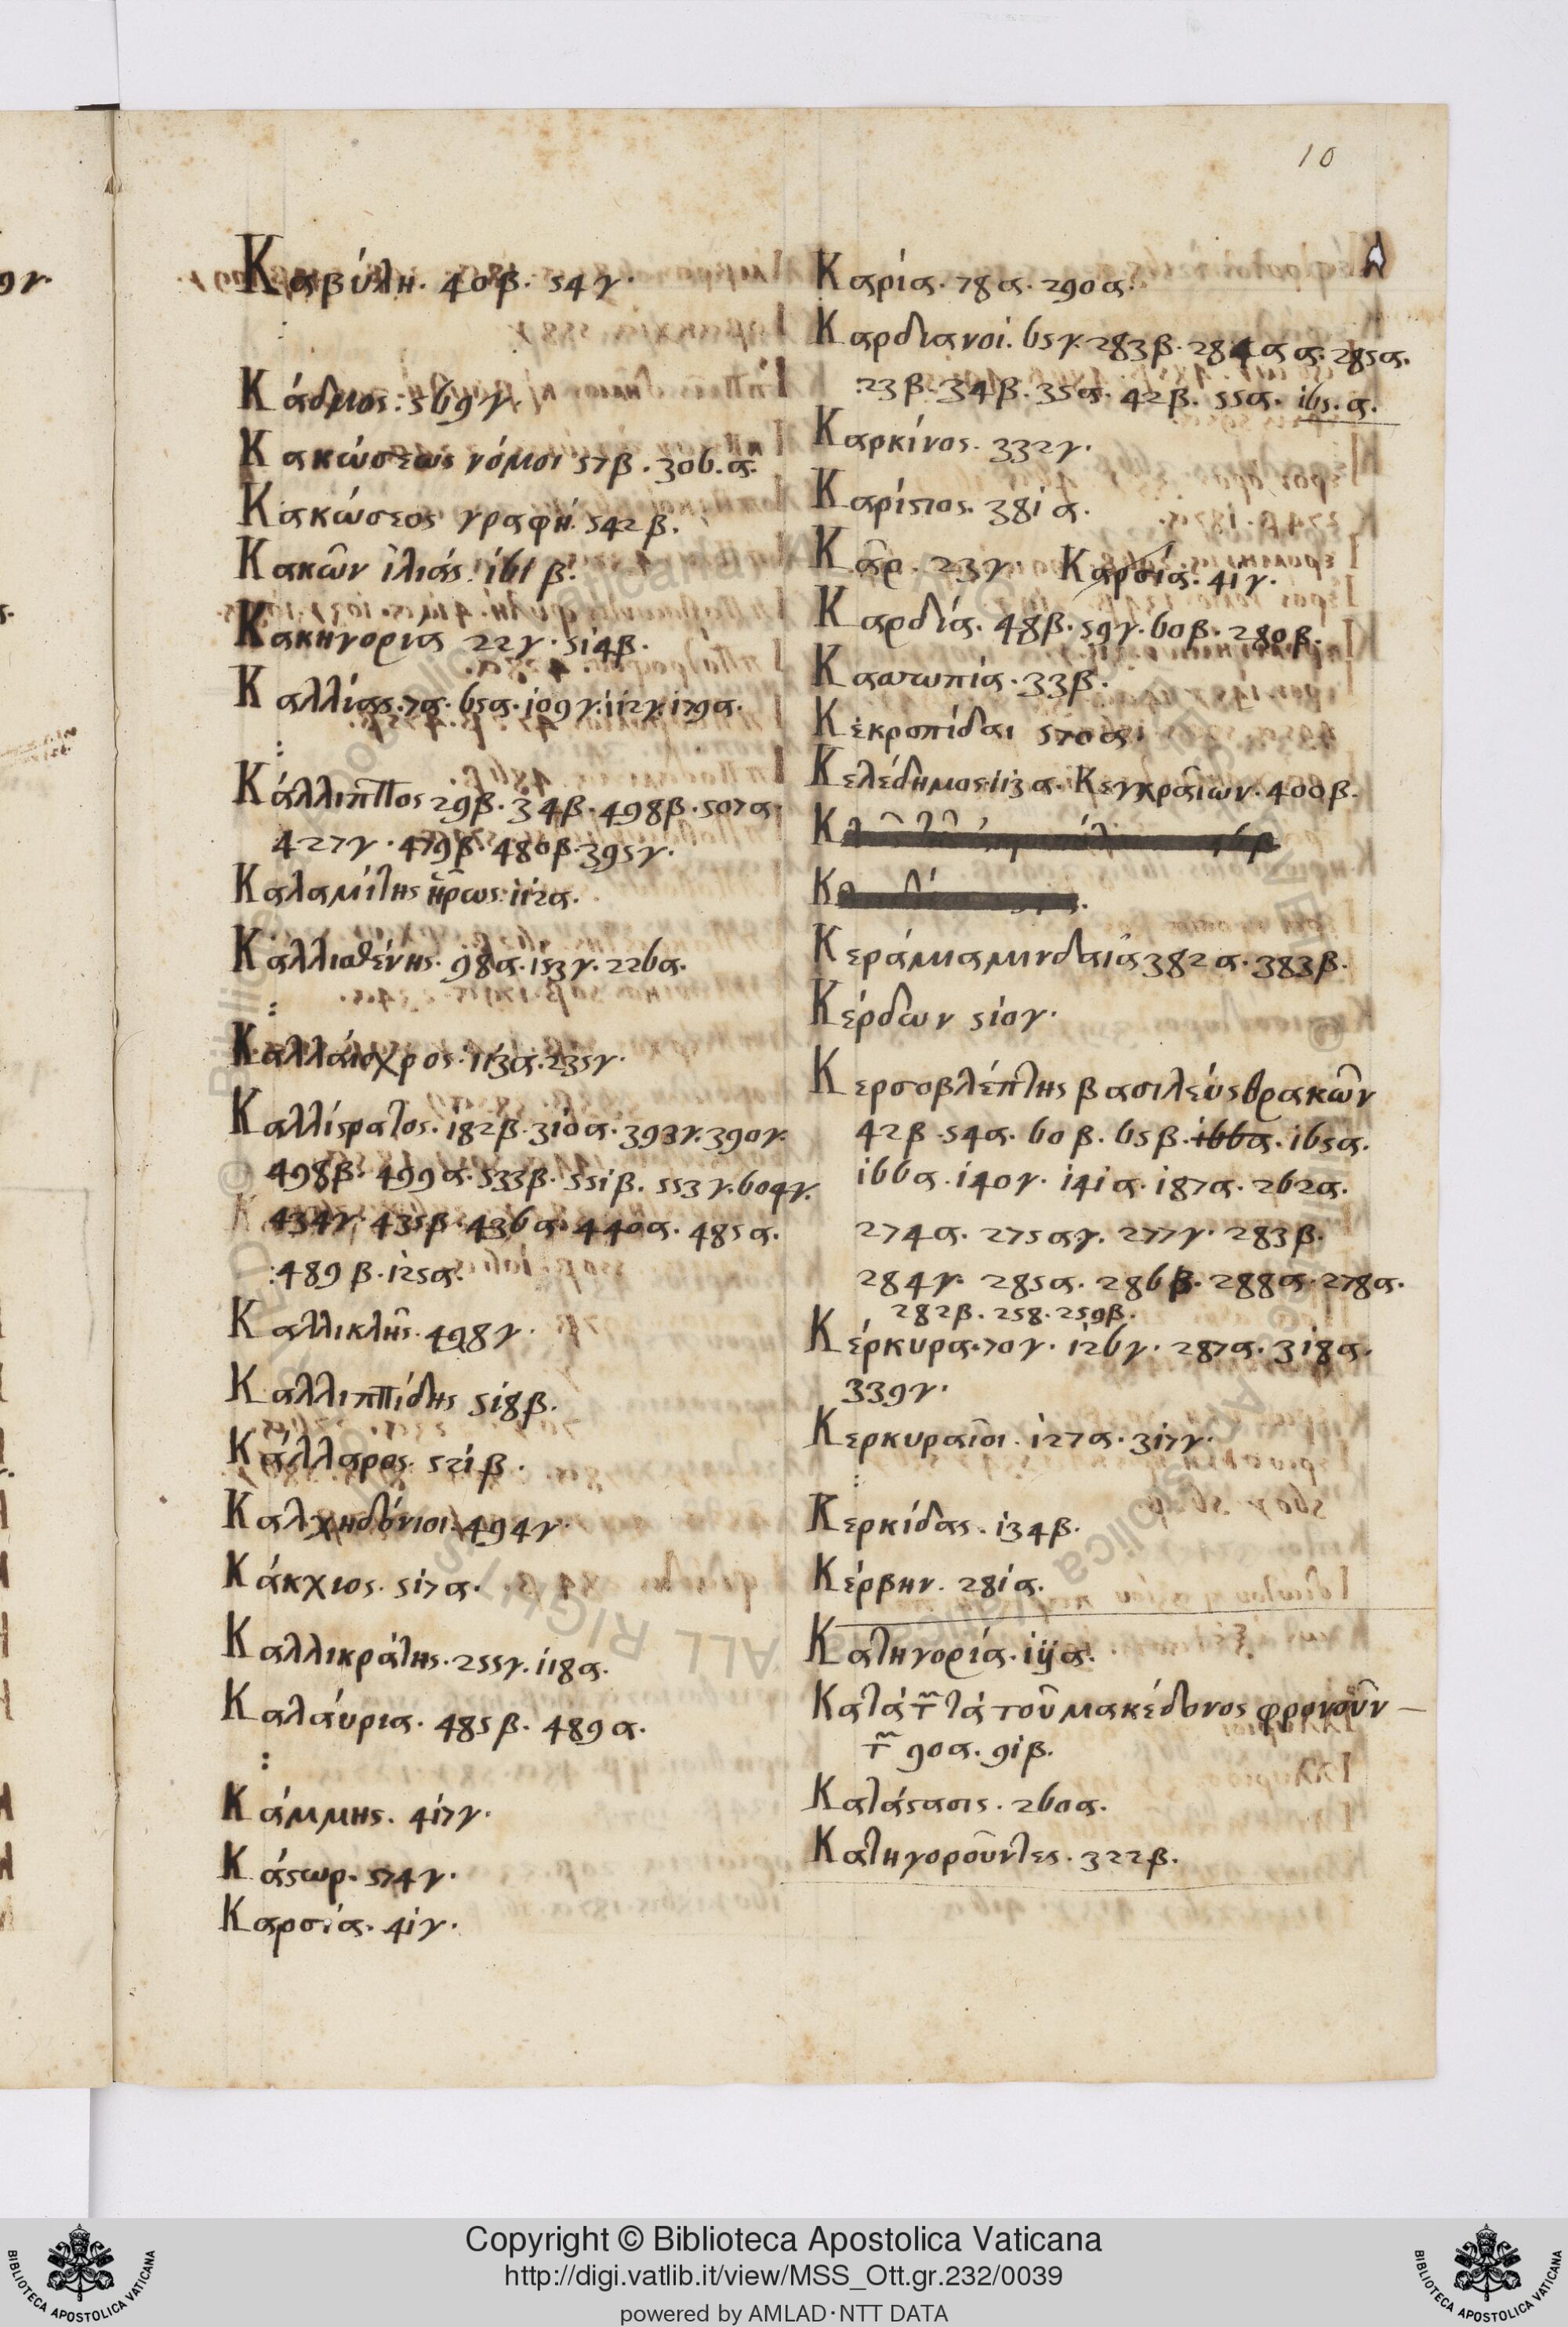 10
Καβύλη. 40β. 54γ.
Κάδμος: 569γ.
Κακώσεως νόμοι 57β. 306.α.
Κακώσεος γραφή. 542β.
Κακῶν ἰλιάς. 161β.
Κακηγορια 22γ. 514β.
Καλλίας. 7α. 65α. 109γ. 112γ. 179α.
Κάλλιππος 29β. 34β. 498β. 507α.
427γ. 479β. 480β. 395γ.
Καλαμίτης ἥρως: 112α.
Καλλισθένης. 98α. 153γ. 226α.
Καλλάισχρος. 113α. 235γ.
Καλλίστρατος. 182β. 310α. 393γ. 390γ.
498β. 499α. 533β. 551β. 553γ. 604γ.
434γ. 435β. 436α. 440α. 485α.
:489β. 125α.
Καλλικλῆς. 498γ.
Καλλιππίδης 518β.
Κάλλαρος. 521β.
Καλχηδόνιοι. 494γ.
Κάκχιος. 517α.
Καλλικράτης. 255γ. 118α.
Καλάυρια. 485β. 489α.
Κάμμης. 417γ.
Κάστωρ. 574γ.
Καρσία. 41γ.
Καρία. 78α. 290α.
Καρδιανοί. 65γ. 283β. 284α α. 285α.
:23β. 34β. 35α. 42β. 55α. 165. α.
Καρκίνος. 332γ.
Καρίστιος. 381α.
Κᾶρ. 23γ Καρσία. 41γ.
Καρδία. 48β. 59γ. 60β. 280β.
Κασσωπία. 33β.
Κεκροπίδαι 570α.
Κελέδημος. 113α. Κεγχραίων. 400β.
Κ
Κ
Κεράμια μινδαῖα 382α. 383β.
Κέρδων 510γ.
Κερσοβλέπτης βασιλεύς θρακῶν
42β. 54α. 60β. 65β. 166α. 165α.
166α. 140γ. 141α. 187α. 262α.
274α. 275αγ. 277γ. 283β.
284γ. 285α. 286β. 288α. 278α.
282β. 258. 259β.
Κέρκυρα. 70γ. 126γ. 287α. 318α.
339γ.
Κερκυραῖοι. 127α. 317γ.
Κερκίδας. 134β.
Κέρβην. 281α.
Κατηγορία. 1ijα.
Κατά τῶν τά τοῦ μακέδονος φρονούν—
τῶν 90α. 91β.
Κατάστασις. 260α.
Κατηγοροῦντες. 322β.
Copyright © Biblioteca Apostolica Vaticana
http://digi.vatlib.it/view/MSS_Ott.gr.232/0039
powered by AMLAD·NTT DATA
BIBLIOTECA APOSTOLICA VATICANA
BIBLIOTECA APOSTOLICA VATICANA